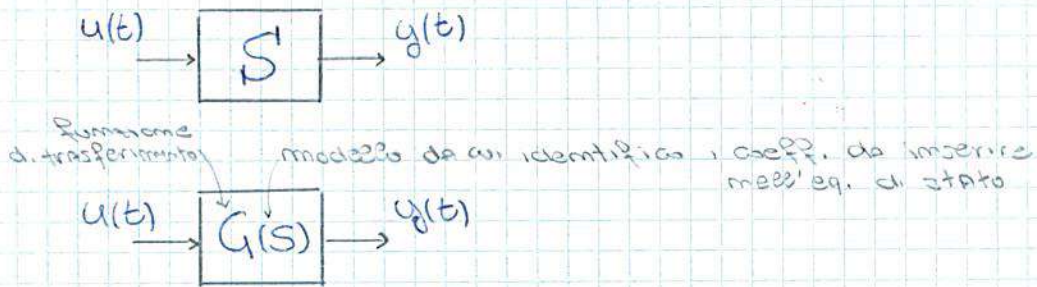 u(t) S y(t)
funzione
di trasferimento
modello da cui identifico i coeff. da inserire
nell'eq. di stato
u(t) G(S) y(t)